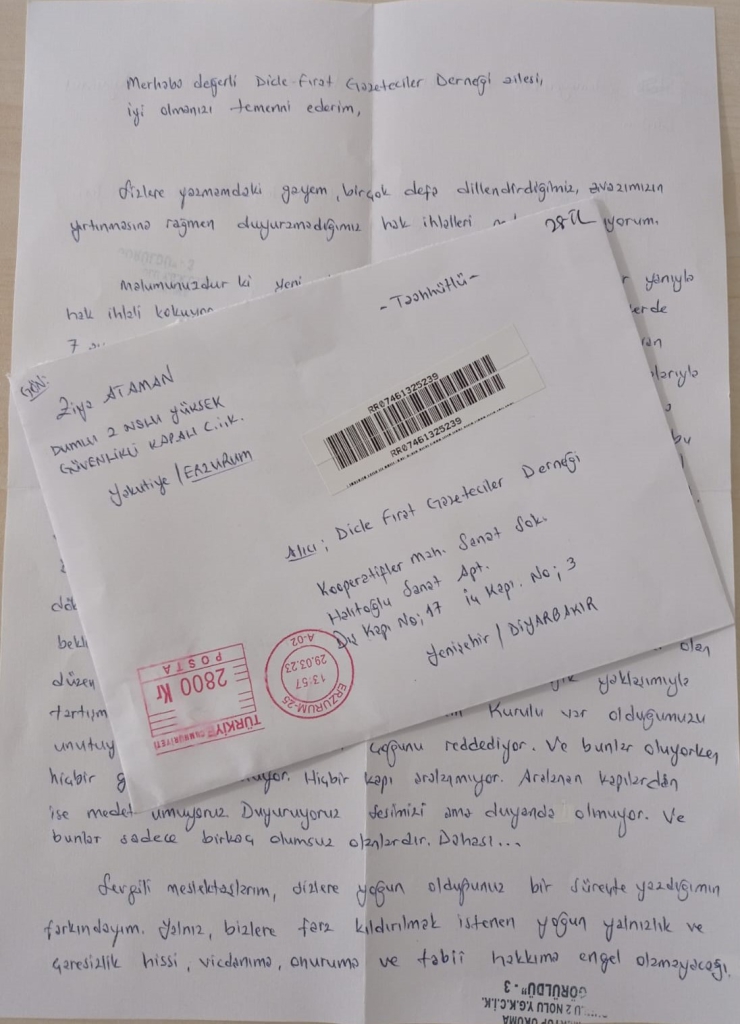 Merhaba değerli Dicle Fırat Gazeteciler Derneği ailesi,
iyi olmanızı temenni ederim,
Sizlere yazmamdaki gayem, birçok defa dillendirdiğimiz, avazımızın
yırtınmasına rağmen duyuramadığımız hak ihlalleri
yorum.
Malumunuzdur ki yeni
yanıyla
hak ihlali
erde
7
larıyla
bu
28 TL
-Taahhütlü-
GÖN:
Ziya ATAMAN
DUMLU 2 NOLU YÜKSEK
GÜVENLİKLİ KAPALI C.İ.K.
Yakutiye / ERZURUM
RR07461325239
RR07461325239
Alıcı; Dicle Fırat Gazeteciler Derneği
Kooperatifler Mah. Sanat Sok.
Halitoğlu Sanat Apt.
Dış Kapı No; 17 İç Kapı. No; 3
Yenişehir / DİYARBAKIR
TÜRKİYE CUMHURİYETİ
2800 Kr
POSTA
ERZURUM-25
13:57
29.03.23
A-02
bekl
olan
düzen
yaklaşımıyla
tartışm
Kurulu var olduğumuzu
unutuy
çoğunu reddediyor. Ve bunlar oluyorken
hiçbir
Hiçbir kapı aralanmıyor. Aralanan kapılardan
ise medet umuyoruz Duyuruyoruz sesimizi ama duyanda olmuyor. Ve
bunlar sadece birkaç olumsuz olanlardır. Dahası...
Sevgili meslektaşlarım, sizlere yoğun olduğunuz bir süreçte yazdığımın
farkındayım. Yalnız, bizlere farz kıldırılmak istenen yoğun yalnızlık ve
çaresizlik hissi, vicdanıma, onuruma ve tabii hakkıma engel olamayacağı.
U 2 NOLU Y.G.K.C.İ.K.
GÖRÜLDÜ" - 3